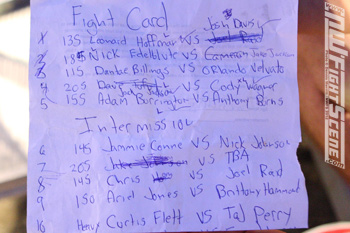 Fight Card
Josh Davis
X 135 Leonard Hoffman VS
2 185 Nick Edelblute VS Cameron
3 115 Dantae Billings VS Orlando Velunto
4 205 VS Cody Wagner
5 155 Adam Barrington VS Anthony Burns
Intermission
6 145 Jammie Conne VS Nick Johnson
7 205 VS TBA
8 145 Chris VS Joel Reid
9 150 Ariel Jones VS Brittany Hammond
10 Heavy Curtis Flett VS Taj Perry
NWFightScene.com